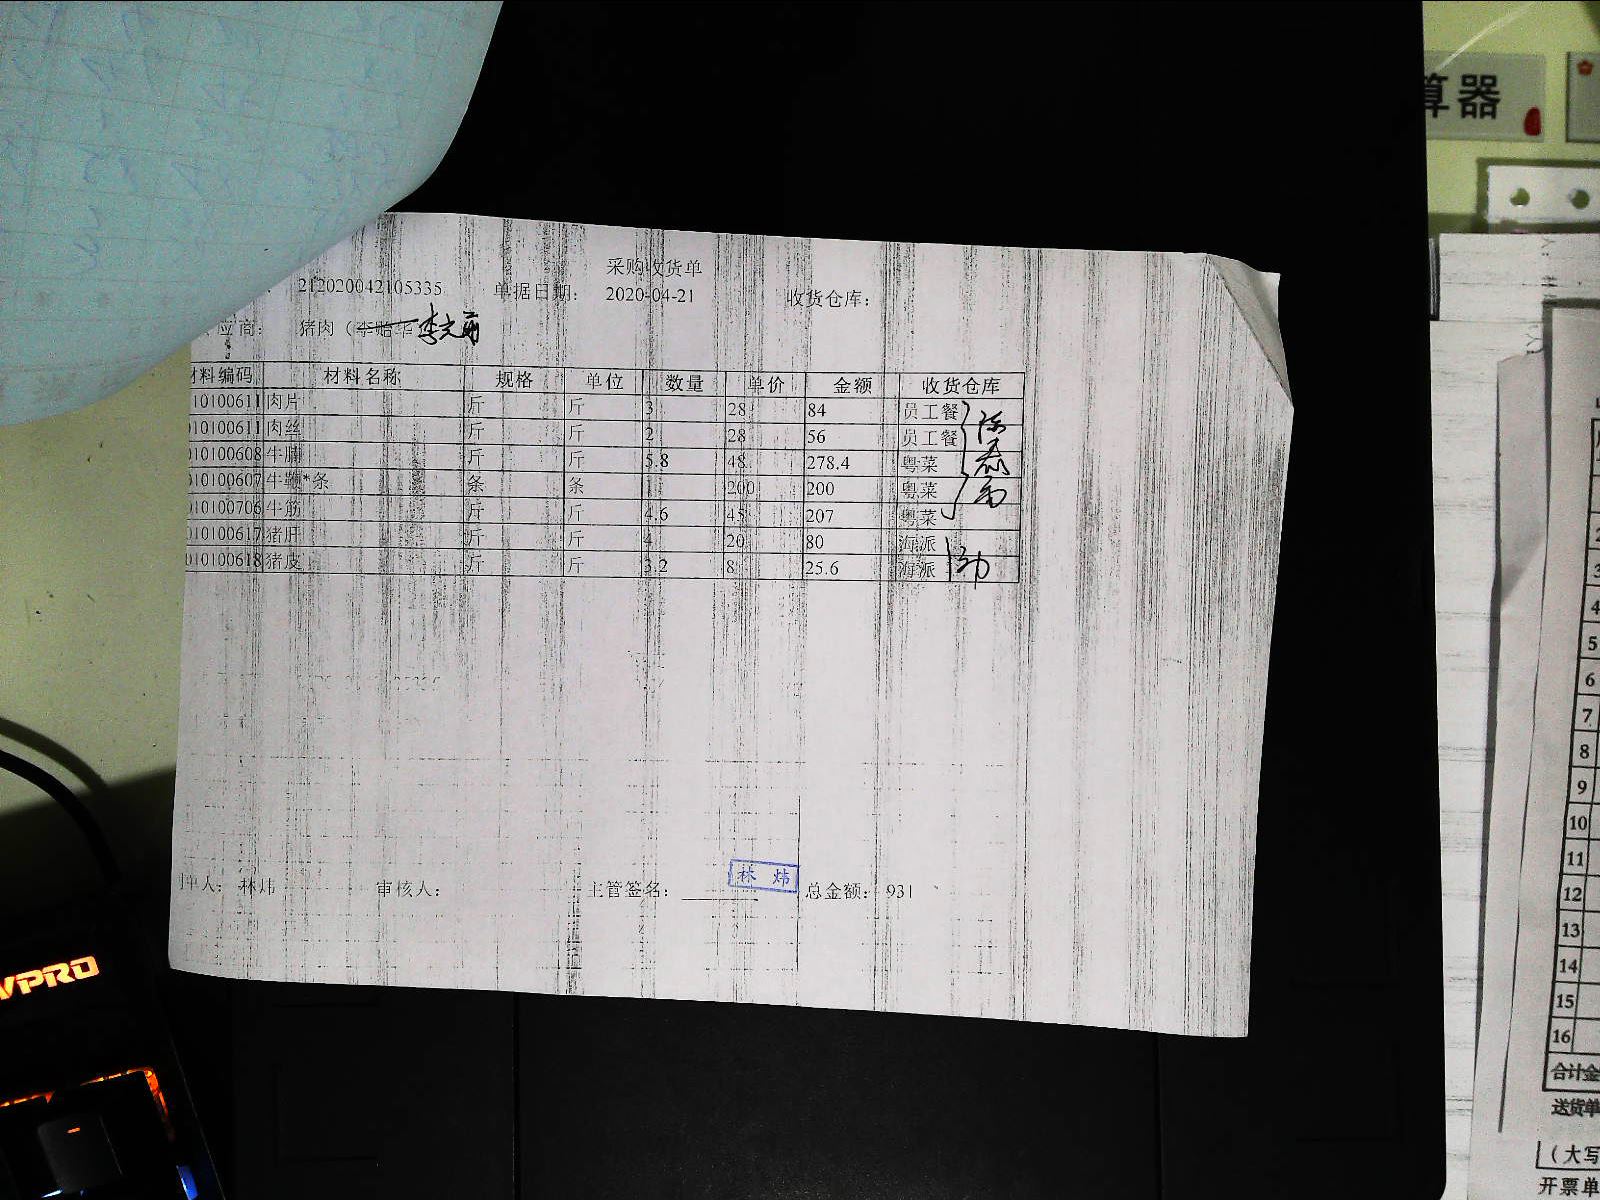 采购收货单
212020042105335 单据日期: 2020-04-21 收货仓库:
应商: 猪肉（李贻华 李文丽
材料编码 材料名称 规格 单位 数量 单价 金额 收货仓库
10100611 肉片 斤 斤 3 28 84 员工餐
010100611 肉丝 斤 斤 2 28 56 员工餐
010100608 牛腩 斤 斤 5.8 48 278.4 粤菜
010100607 牛鞭*条 条 条 1 200 200 粤菜
010100706 牛筋 斤 斤 4.6 45 207 粤菜
010100617 猪肝 斤 斤 4 20 80 海派
010100618 猪皮 斤 斤 3.2 8 25.6 海派
林炜
制单人: 林炜 审核人: 主管签名: 总金额: 931
算器
VPRO
4
5
6
7
8
9
10
11
12
13
14
15
16
合计金
送货单
（大写
开票单